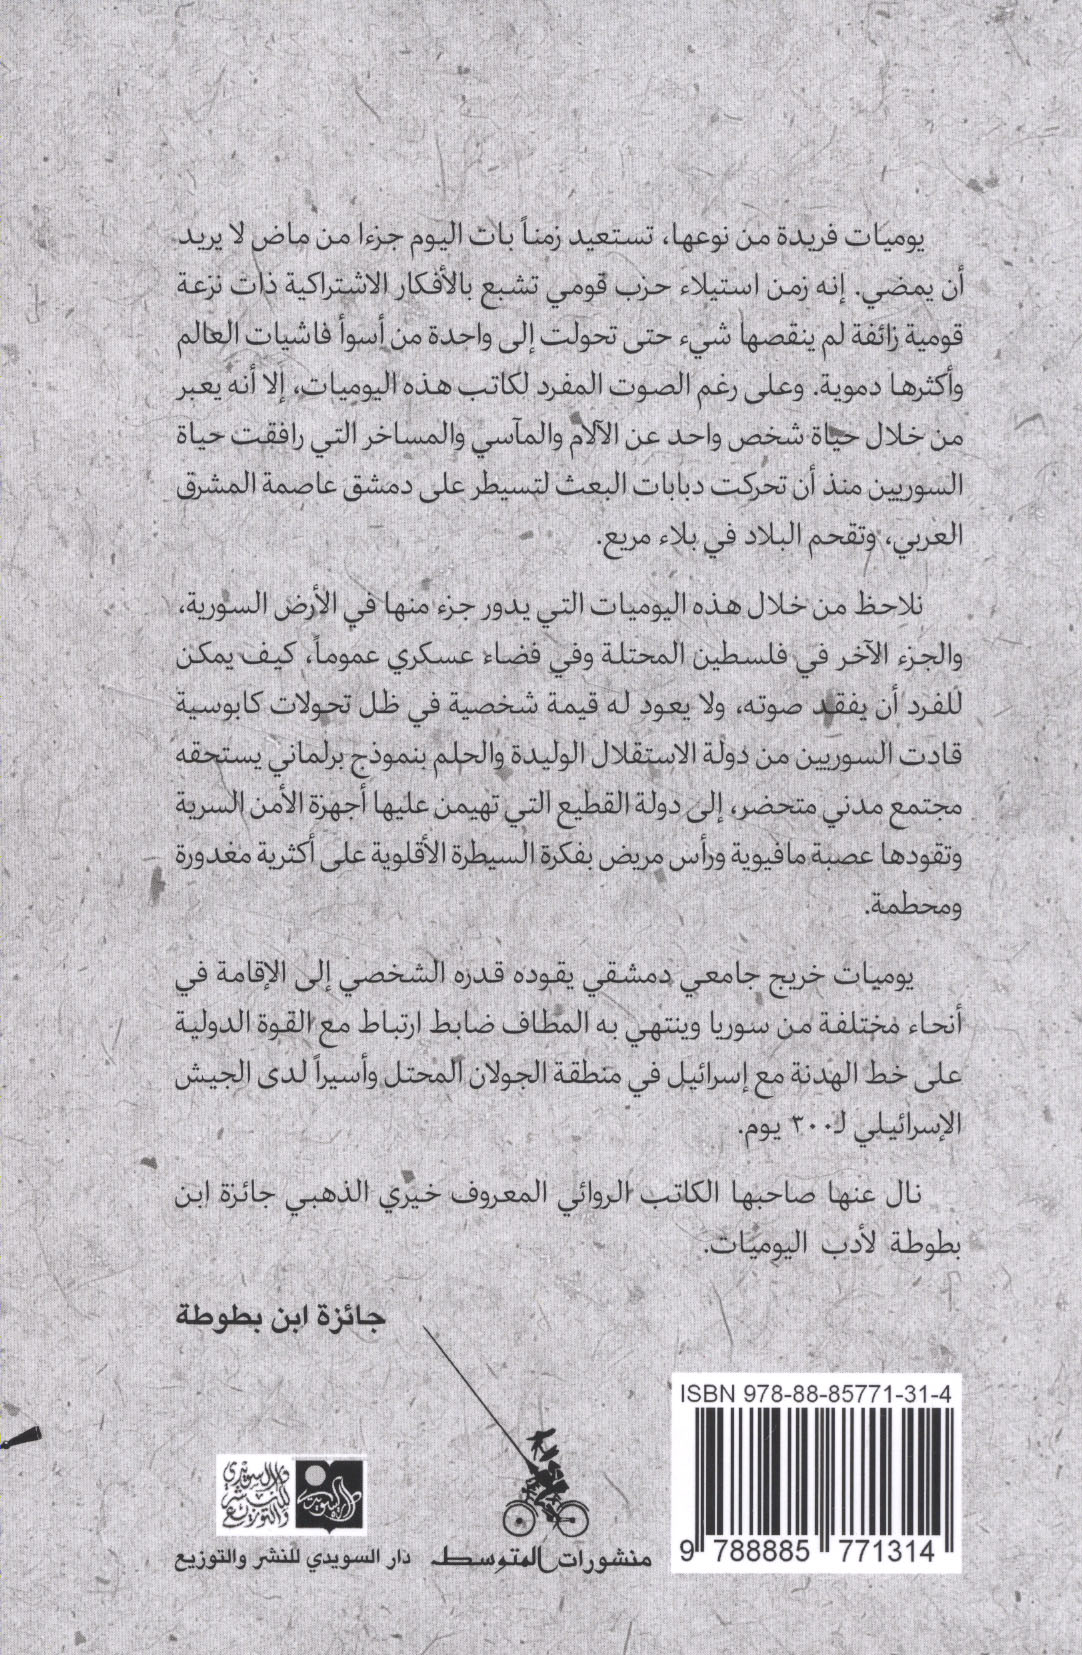 يوميات فريدة من نوعها، تستعيد زمناً بات اليوم جزءا من ماض لا يريد
أن يمضي. إنه زمن استيلاء حزب قومي تشبع بالأفكار الاشتراكية ذات نزعة
قومية زائفة لم ينقصها شيء حتى تحولت إلى واحدة من أسوأ فاشيات العالم
وأكثرها دموية. وعلى رغم الصوت المفرد لكاتب هذه اليوميات، إلا أنه يعبر
من خلال حياة شخص واحد عن الآلام والمآسي والمساخر التي رافقت حياة
السوريين منذ أن تحركت دبابات البعث لتسيطر على دمشق عاصمة المشرق
العربي، وتقحم البلاد في بلاء مريع.
نلاحظ من خلال هذه اليوميات التي يدور جزء منها في الأرض السورية،
والجزء الآخر في فلسطين المحتلة وفي فضاء عسكري عموماً، كيف يمكن
للفرد أن يفقد صوته، ولا يعود له قيمة شخصية في ظل تحولات كابوسية
قادت السوريين من دولة الاستقلال الوليدة والحلم بنموذج برلماني يستحقه
مجتمع مدني متحضر، إلى دولة القطيع التي تهيمن عليها أجهزة الأمن السرية
وتقودها عصبة مافيوية ورأس مريض بفكرة السيطرة الأقلوية على أكثرية مغدورة
ومحطمة.
يوميات خريج جامعي دمشقي يقوده قدره الشخصي إلى الإقامة في
أنحاء مختلفة من سوريا وينتهي به المطاف ضابط ارتباط مع القوة الدولية
على خط الهدنة مع إسرائيل في منطقة الجولان المحتل وأسيراً لدى الجيش
الإسرائيلي لـ٣٠٠ يوم.
نال عنها صاحبها الكاتب الروائي المعروف خيري الذهبي جائزة ابن
بطوطة لأدب اليوميات.
جائزة ابن بطوطة
ISBN 978-88-85771-31-4
9 788885 771314
دار السويدي للنشر والتوزيع
منشورات المتوسط
دار السويدي للنشر والتوزيع